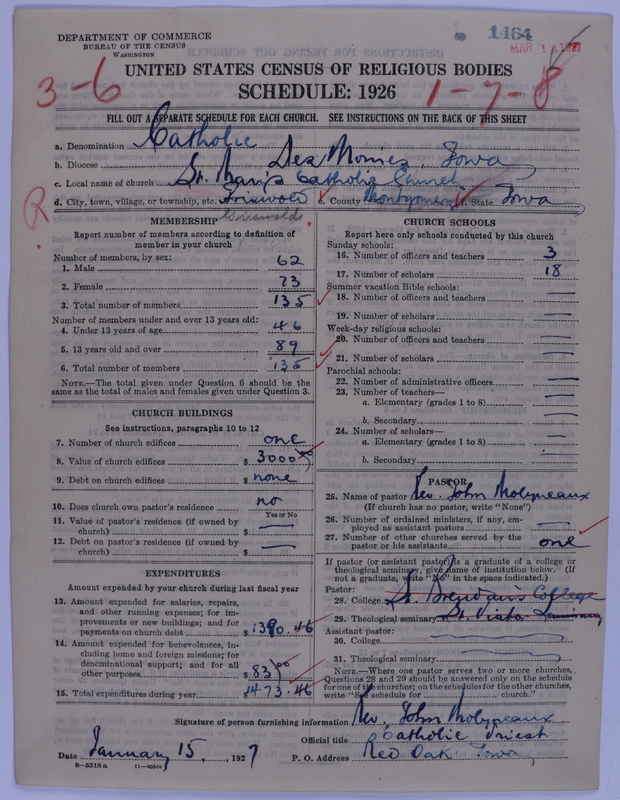 DEPARTMENT OF COMMERCE
BUREAU OF THE CENSUS
WASHINGTON
1464
3-6
UNITED STATES CENSUS OF RELIGIOUS BODIES
SCHEDULE: 1926
1-7-8
FILL OUT A SEPARATE SCHEDULE FOR EACH CHURCH. SEE INSTRUCTIONS ON THE BACK OF THIS SHEET
a. Denomination Catholic
b. Diocese Des Moines, Iowa
c. Local name of church St. Mary's Catholic Church
d. City, town, village, or township, etc. Griswold e. County Montgomery f. State Iowa
R
Griswold
MEMBERSHIP
Report number of members according to definition of member in your church
Number of members, by sex:
1. Male 62
2. Female 73
3. Total number of members 135
Number of members under and over 13 years old:
4. Under 13 years of age 46
5. 13 years old and over 89
6. Total number of members 135
NOTE.—The total given under Question 6 should be the same as the total of males and females given under Question 3.
CHURCH BUILDINGS
See instructions, paragraphs 10 to 12
7. Number of church edifices one
8. Value of church edifices $ 3000 00
9. Debt on church edifices $ none
10. Does church own pastor's residence no
Yes or No
11. Value of pastor's residence (if owned by church) $ —
12. Debt on pastor's residence (if owned by church) $ —
EXPENDITURES
Amount expended by your church during last fiscal year
13. Amount expended for salaries, repairs, and other running expenses; for improvements or new buildings; and for payments on church debt $ 1390.46
14. Amount expended for benevolences, including home and foreign missions; for denominational support; and for all other purposes $ 83.00
15. Total expenditures during year $ 1473.46
CHURCH SCHOOLS
Report here only schools conducted by this church
Sunday schools:
16. Number of officers and teachers 3
17. Number of scholars 18
Summer vacation Bible schools:
18. Number of officers and teachers —
19. Number of scholars —
Week-day religious schools:
20. Number of officers and teachers —
21. Number of scholars —
Parochial schools:
22. Number of administrative officers —
23. Number of teachers—
a. Elementary (grades 1 to 8) —
b. Secondary —
24. Number of scholars—
a. Elementary (grades 1 to 8) —
b. Secondary —
PASTOR
25. Name of pastor Rev. John Molyneaux
(If church has no pastor, write "None")
26. Number of ordained ministers, if any, employed as assistant pastors —
27. Number of other churches served by the pastor or his assistants one
If pastor (or assistant pastor) is a graduate of a college or theological seminary, give name of institution below. (If not a graduate, write "No" in the space indicated.)
Pastor:
28. College St. Brendan's College
29. Theological seminary St. Viator Seminary
Assistant pastor:
30. College —
31. Theological seminary —
NOTE.—Where one pastor serves two or more churches, Questions 28 and 29 should be answered only on the schedule for one of the churches; on the schedules for the other churches, write "See schedule for church."
Signature of person furnishing information Rev. John Molyneaux
Official title Catholic Priest
Date January 15, 1927 P. O. Address Red Oak Iowa
8-5318a 11-9051a